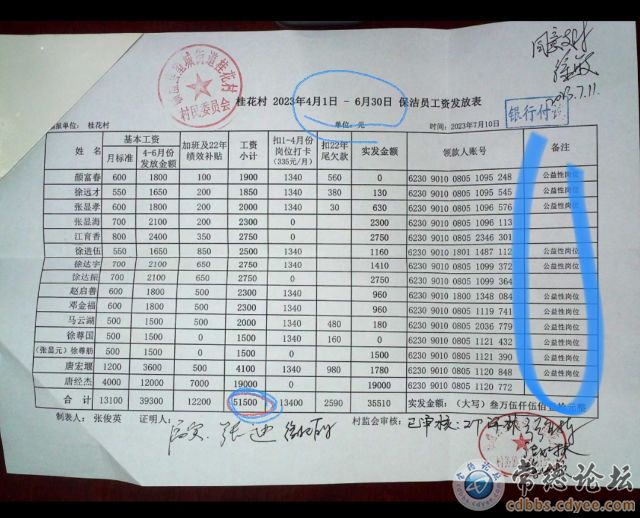 同意支付
2023.7.11.
街道桂花村
村民委员会
桂花村 2023年4月1日 - 6月30日 保洁员工资发放表
银行付讫
填报单位: 桂花村 单位: 元 时间: 2023年7月10日
姓 名 基本工资 月标准 4-6月份发放金额 加班及22年绩效补贴 工资小计 扣1-4月份岗位打卡(335元/月) 扣22年尾欠款 实发金额 领款人账号 备注
颜富春 600 1800 100 1900 1340 560 0 6230 9010 0805 1095 248 公益性岗位
徐远才 550 1650 200 1850 1340 380 130 6230 9010 0805 1095 545 公益性岗位
张显孝 600 1800 200 2000 1340 30 630 6230 9010 0805 1096 576 公益性岗位
张显海 700 2100 200 2300 0 2300 6230 9010 0805 1096 113
江育香 800 2400 350 2750 0 2750 6230 9010 0805 2346 301
徐进伍 550 1650 850 2500 1340 1160 6230 9010 1801 1487 112 公益性岗位
徐达宇 700 2100 650 2750 1340 1410 6230 9010 0805 1099 372 公益性岗位
徐达振 700 2100 650 2750 0 2750 6230 9010 0805 1099 364
赵启善 600 1800 500 2300 1340 960 6230 9010 1800 1348 084 公益性岗位
邓金福 600 1800 500 2300 1340 960 6230 9010 0805 1119 741 公益性岗位
马云湖 500 1500 500 2000 1340 480 180 6230 9010 0805 2036 779 公益性岗位
徐尊国 500 1500 500 2000 1340 160 500 6230 9010 0805 1121 531 公益性岗位
(张显元)徐尊舫 500 1500 0 1500 1500 6230 9010 0805 1121 390 公益性岗位
唐宏堰 1200 3600 500 4100 1340 980 1780 6230 9010 0805 1120 848 公益性岗位
唐经杰 4000 12000 7000 19000 19000 6230 9010 0805 1120 772
合 计 13100 39300 12200 51500 13400 2590 35510 实发金额: (大写) 叁万伍仟伍佰壹拾元整
制表人: 张俊英 证明人: 村监会审核: 已审核:
常德论坛
常德论坛
cdbbs.cdyee.com